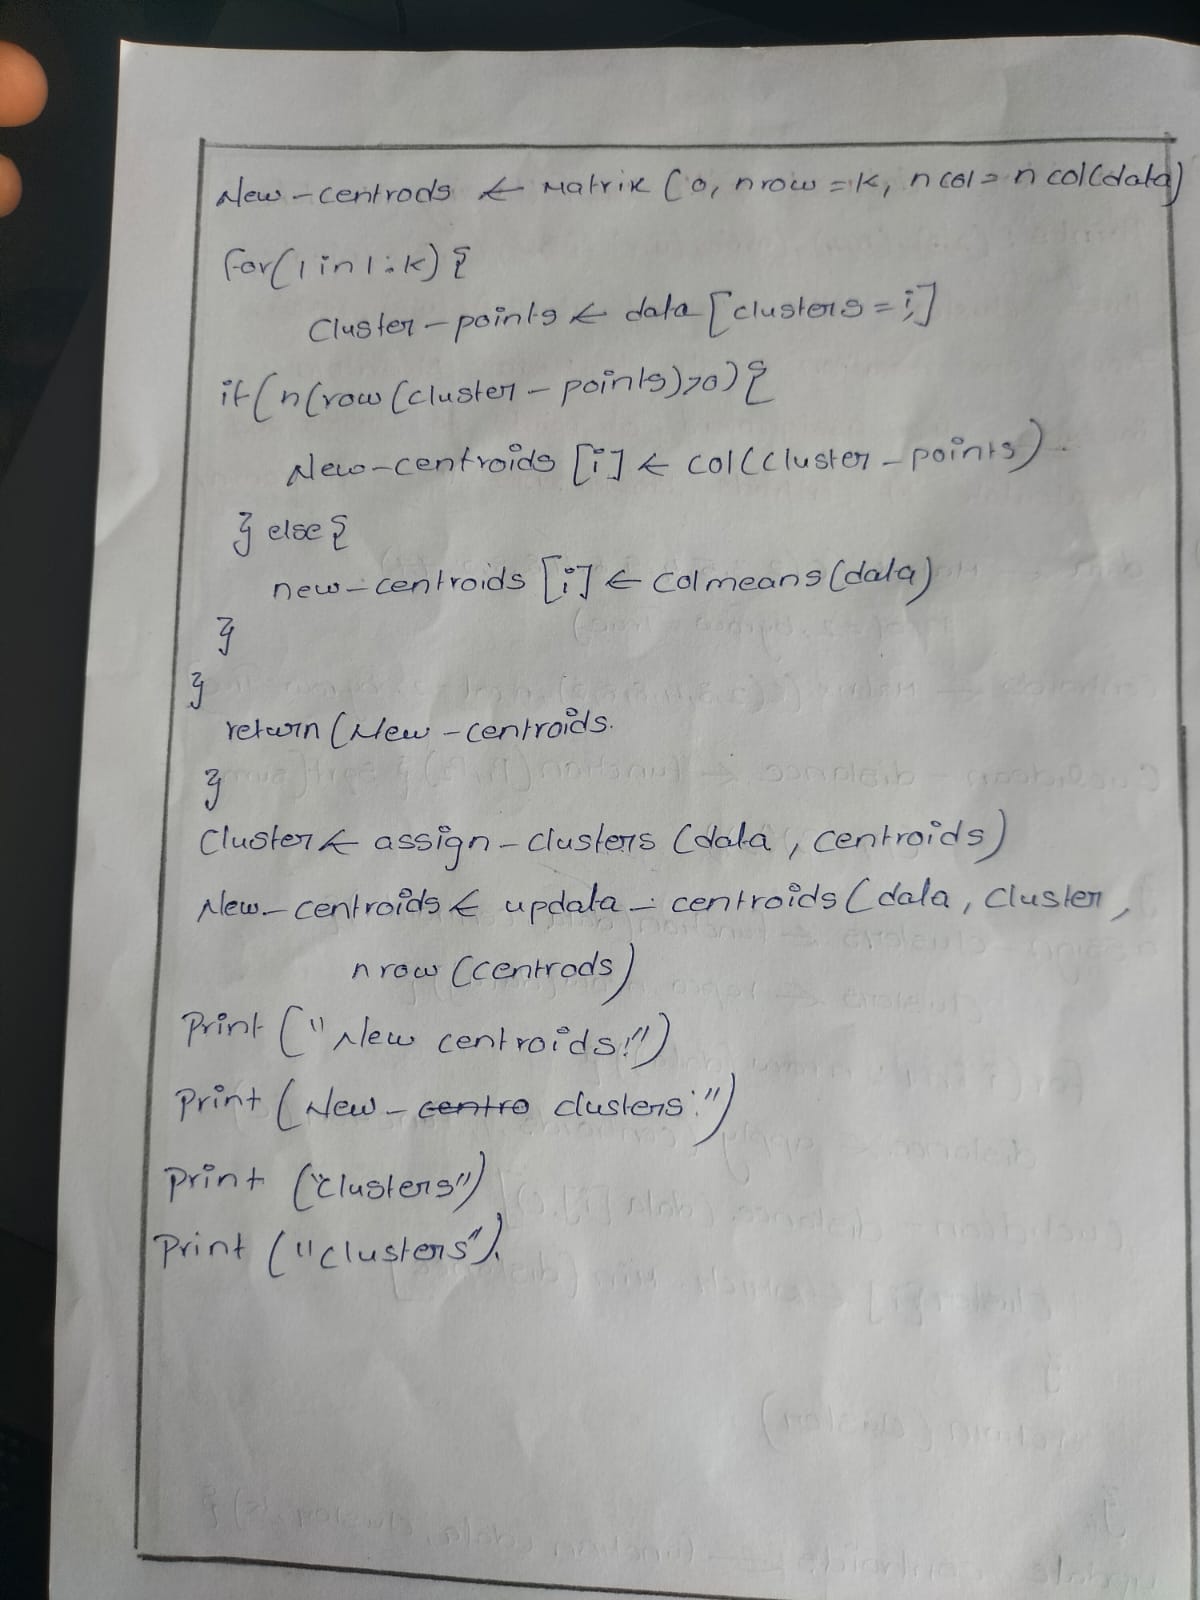 New-centrods ← Matrix (0, nrow = k, ncol = ncol(data)
for(1 in 1:k) {
Cluster-points ← data [clusters = i]
if(n(row(cluster-points)>0) {
New-centroids [i] ← col(cluster-points)
} else {
new-centroids [i] ← colmeans(data)
}
}
return (New-centroids.
}
Cluster ← assign-clusters (data, centroids)
New-centroids ← updata-centroids (data, cluster,
nrow (centrods)
Print ("New centroids!")
Print (New-centro clusters:")
Print ("clusters")
Print ("clusters").